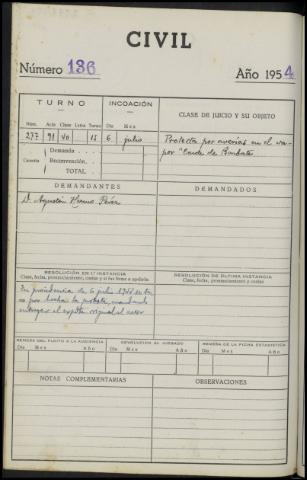 CIVIL
Número 136 Año 1954
TURNO INCOACIÓN CLASE DE JUICIO Y SU OBJETO
Núm. Acto Clase Letra Turno Día Mes
277 91 15 6 julio Protesta por averías en el va-
Cuantía Demanda . . . por "Conde de Barbate
Reconvención. .
TOTAL . .
DEMANDANTES DEMANDADOS
D. Agustín Pérez
RESOLUCIÓN EN 1.ª INSTANCIA RESOLUCIÓN DE ÚLTIMA INSTANCIA
Clase, fecha, pronunciamiento, costas y si fué firme o apelada. Clase, fecha, pronunciamiento y costas
En providencia de 6 julio 1954 se tu-
vo por hecha la protesta, mandando
entregar el original al actor
REMESA DEL PLEITO A LA AUDIENCIA DEVOLUCIÓN AL JUZGADO REMESA DE LA FICHA ESTADÍSTICA
Día Mes Año Día Mes Año Día Mes Año
NOTAS COMPLEMENTARIAS OBSERVACIONES